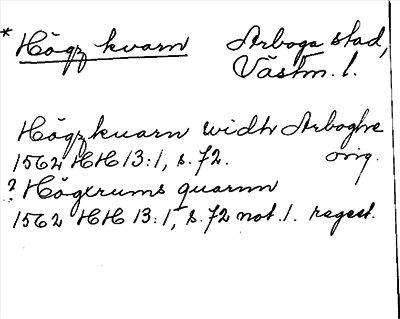 * Högz kvarn Arboga stad,
Västm. l.
Högz kuarn widh Arboghe
1562 HH 13:1, s. 72. orig.
? Högerums quarnn
1562 HH 13:1, s. 72 not. 1. regest.